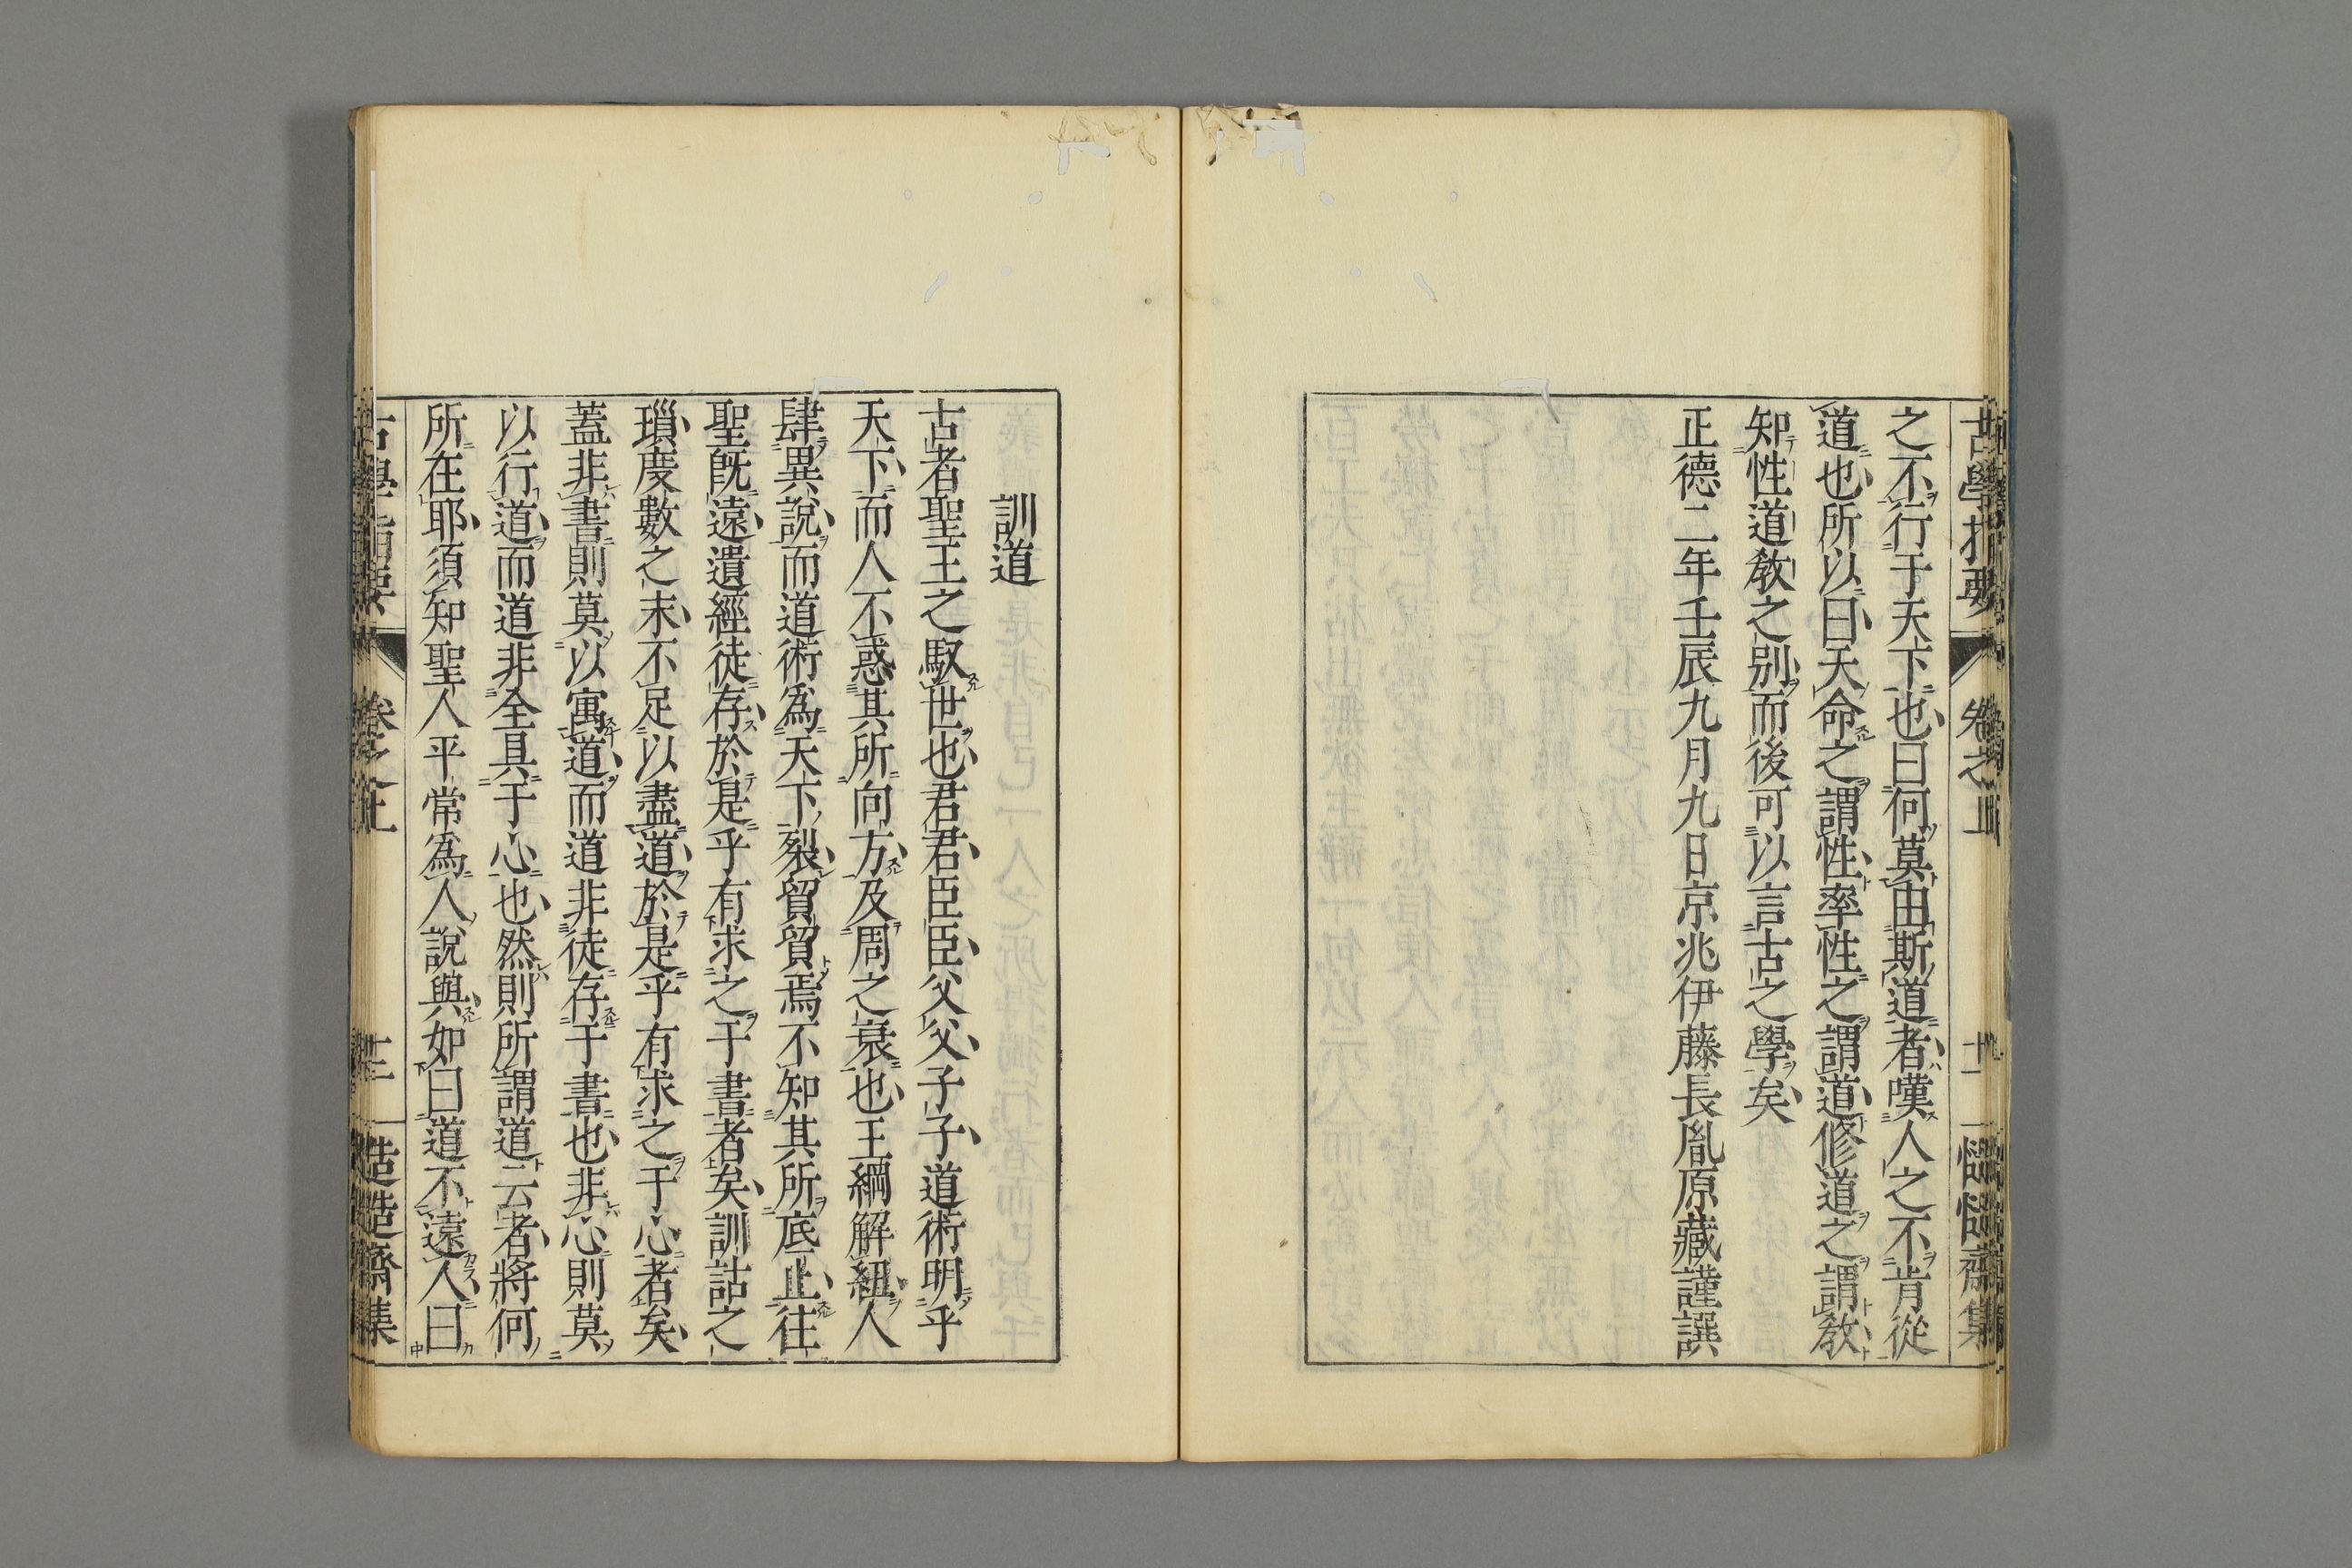 之不行于天下也曰何莫由斯道者嘆人之不肯從
道也所以曰天命之謂性率性之謂道修道之謂教
知性道教之別而後可以言古之學矣
正德二年壬辰九月九日京兆伊藤長胤原藏謹譔
訓道
古者聖王之馭世也君君臣臣父父子子道術明乎
天下而人不惑其所向方及周之衰也王綱解紐人
肆異說而道術為天下裂貿貿焉不知其所底止往
聖旣遠遺經徒存於是乎有求之于書者矣訓詁之
瑣度數之末不足以盡道於是乎有求之于心者矣
蓋非書則莫以寓道而道非徒存于書也非心則莫
以行道而道非全具于心也然則所謂道云者將何
所在耶須知聖人平常為人說與如曰道不遠人曰